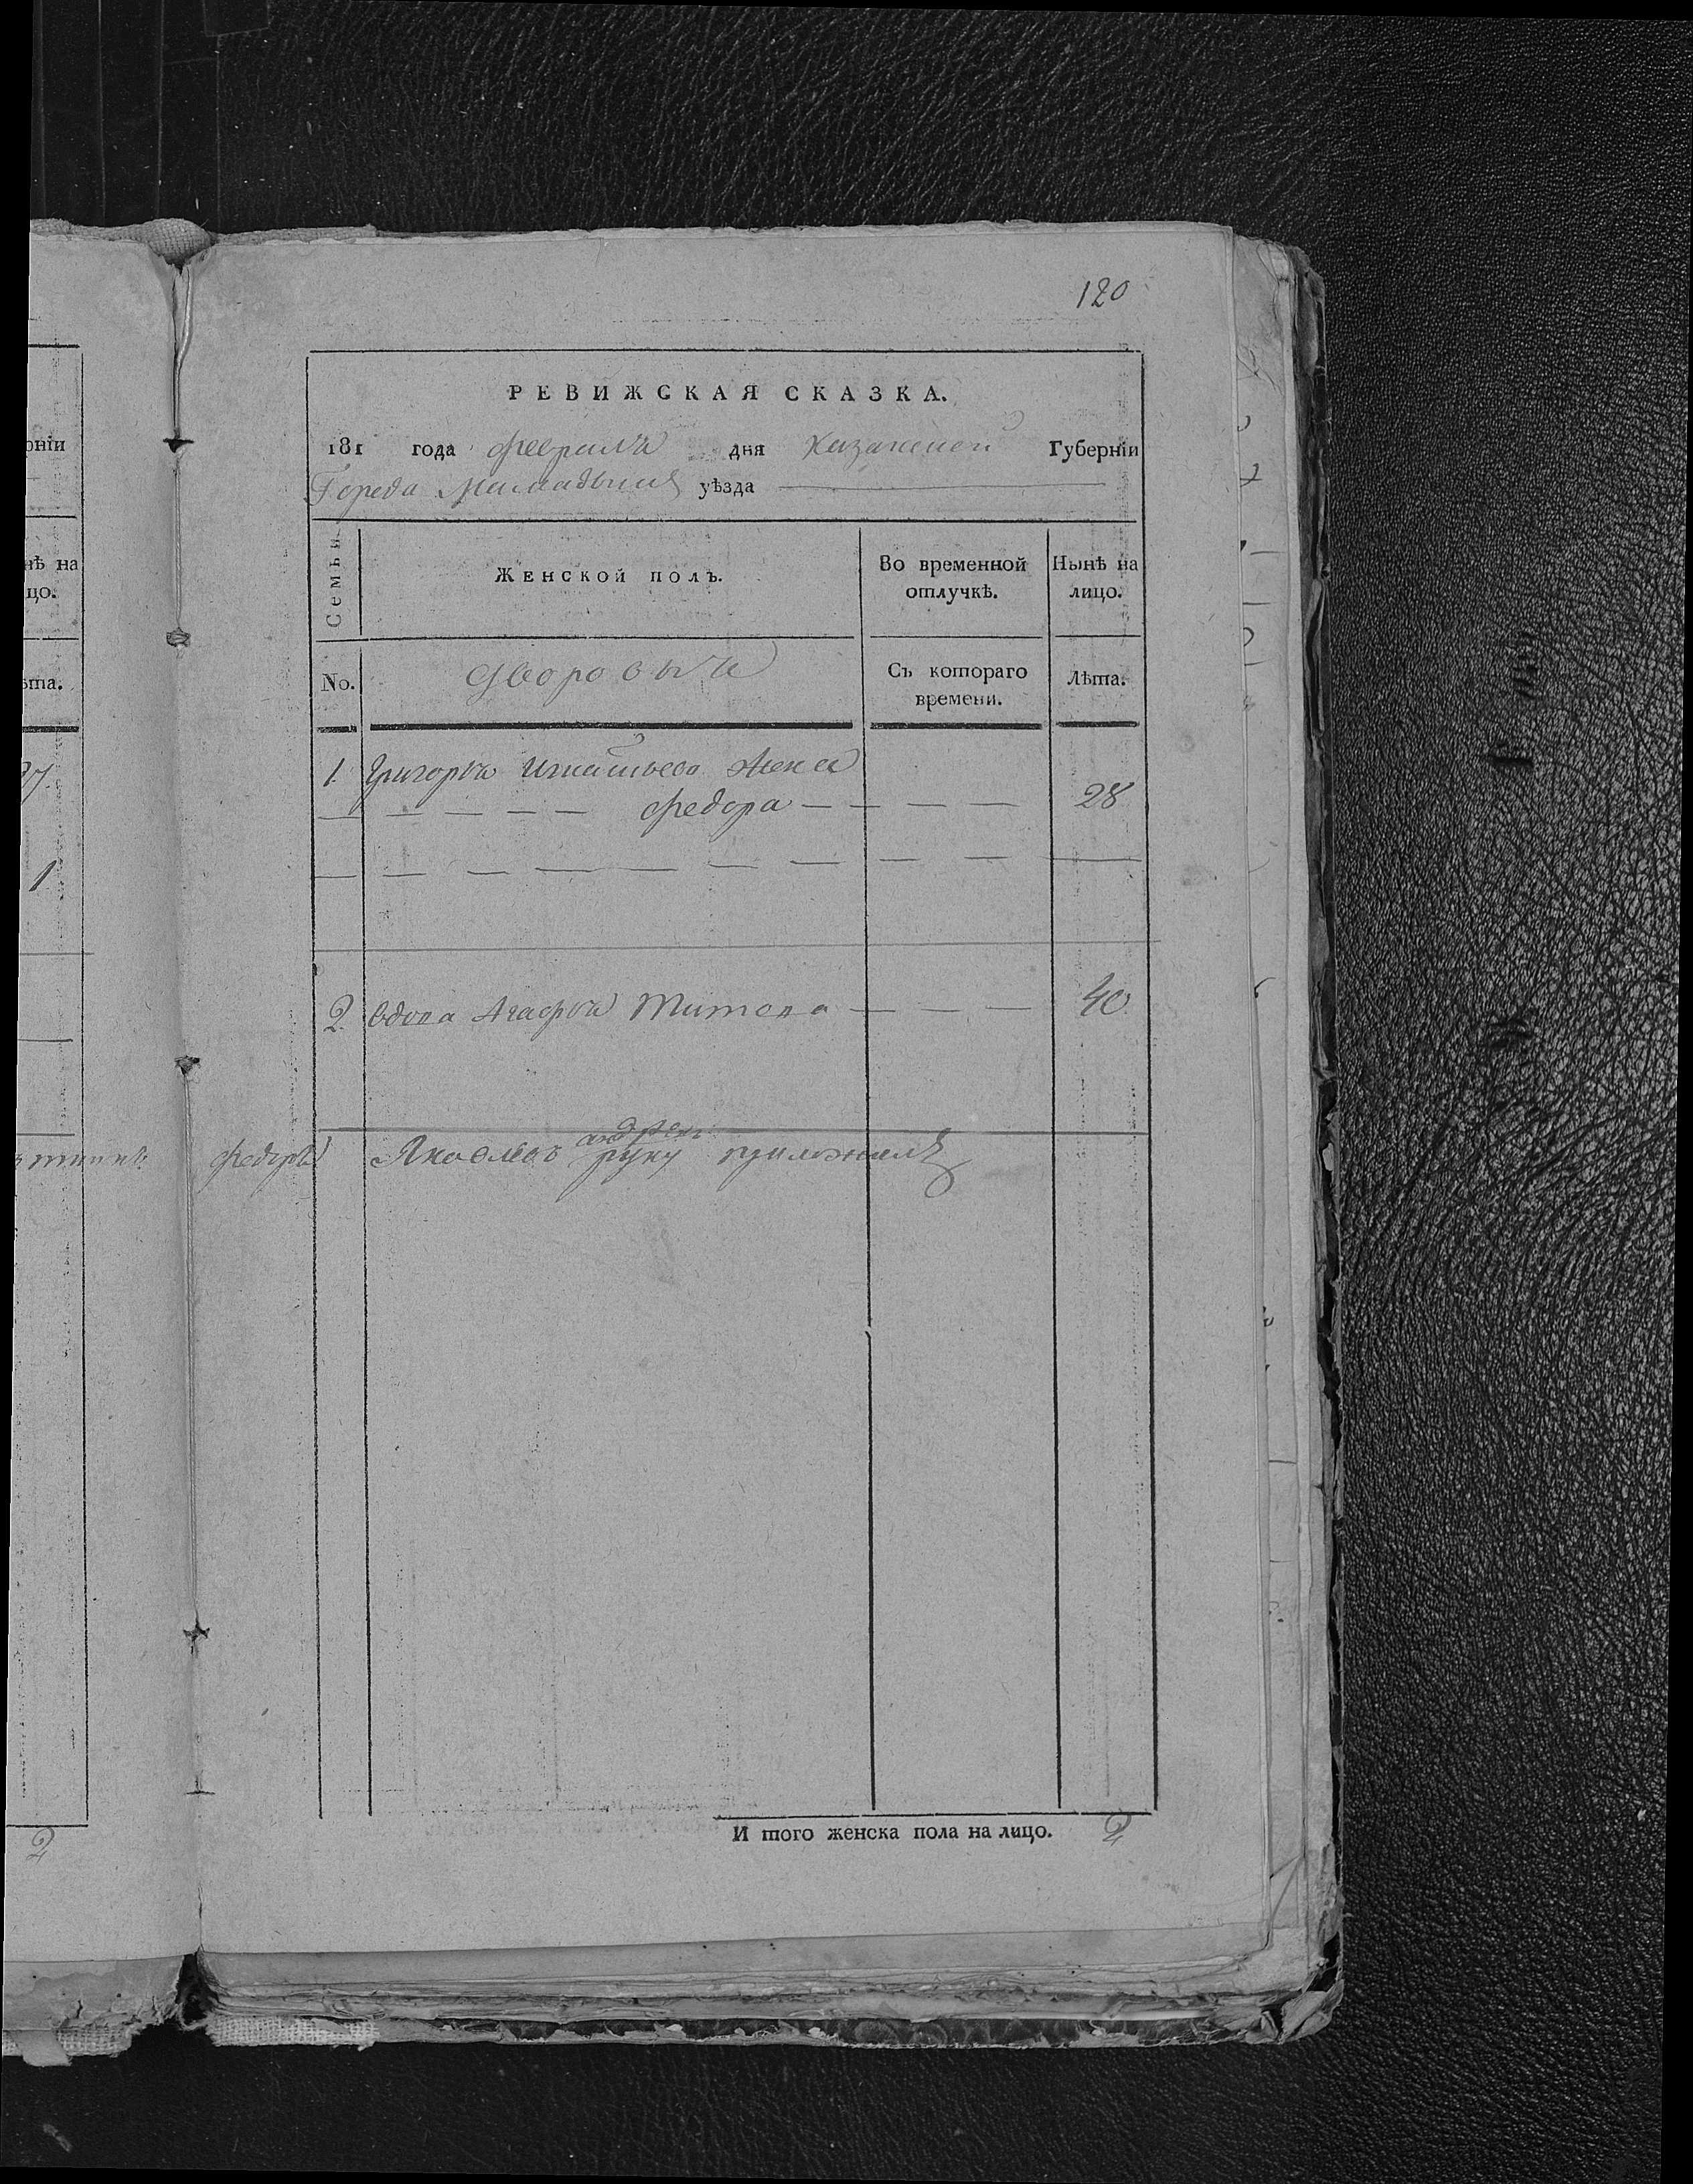 120
РЕВИЖСКАЯ СКАЗКА.
181 года февраля дня Казанской Губерніи
Города Мамадыша уѣзда
рніи
Семьи.
Женской полъ.
Во временной отлучкѣ.
Нынѣ на лицо.
нѣ на
цо.
No.
дворовыя
Съ котораго времени.
Лѣта.
ѣта.
1 Григорья Игнатьева жена
федора 28
1
2 Вдова Агафья Титова 40
андрей
федоръ Яковлевъ руку приложилъ
И того женска пола на лицо. 2
2